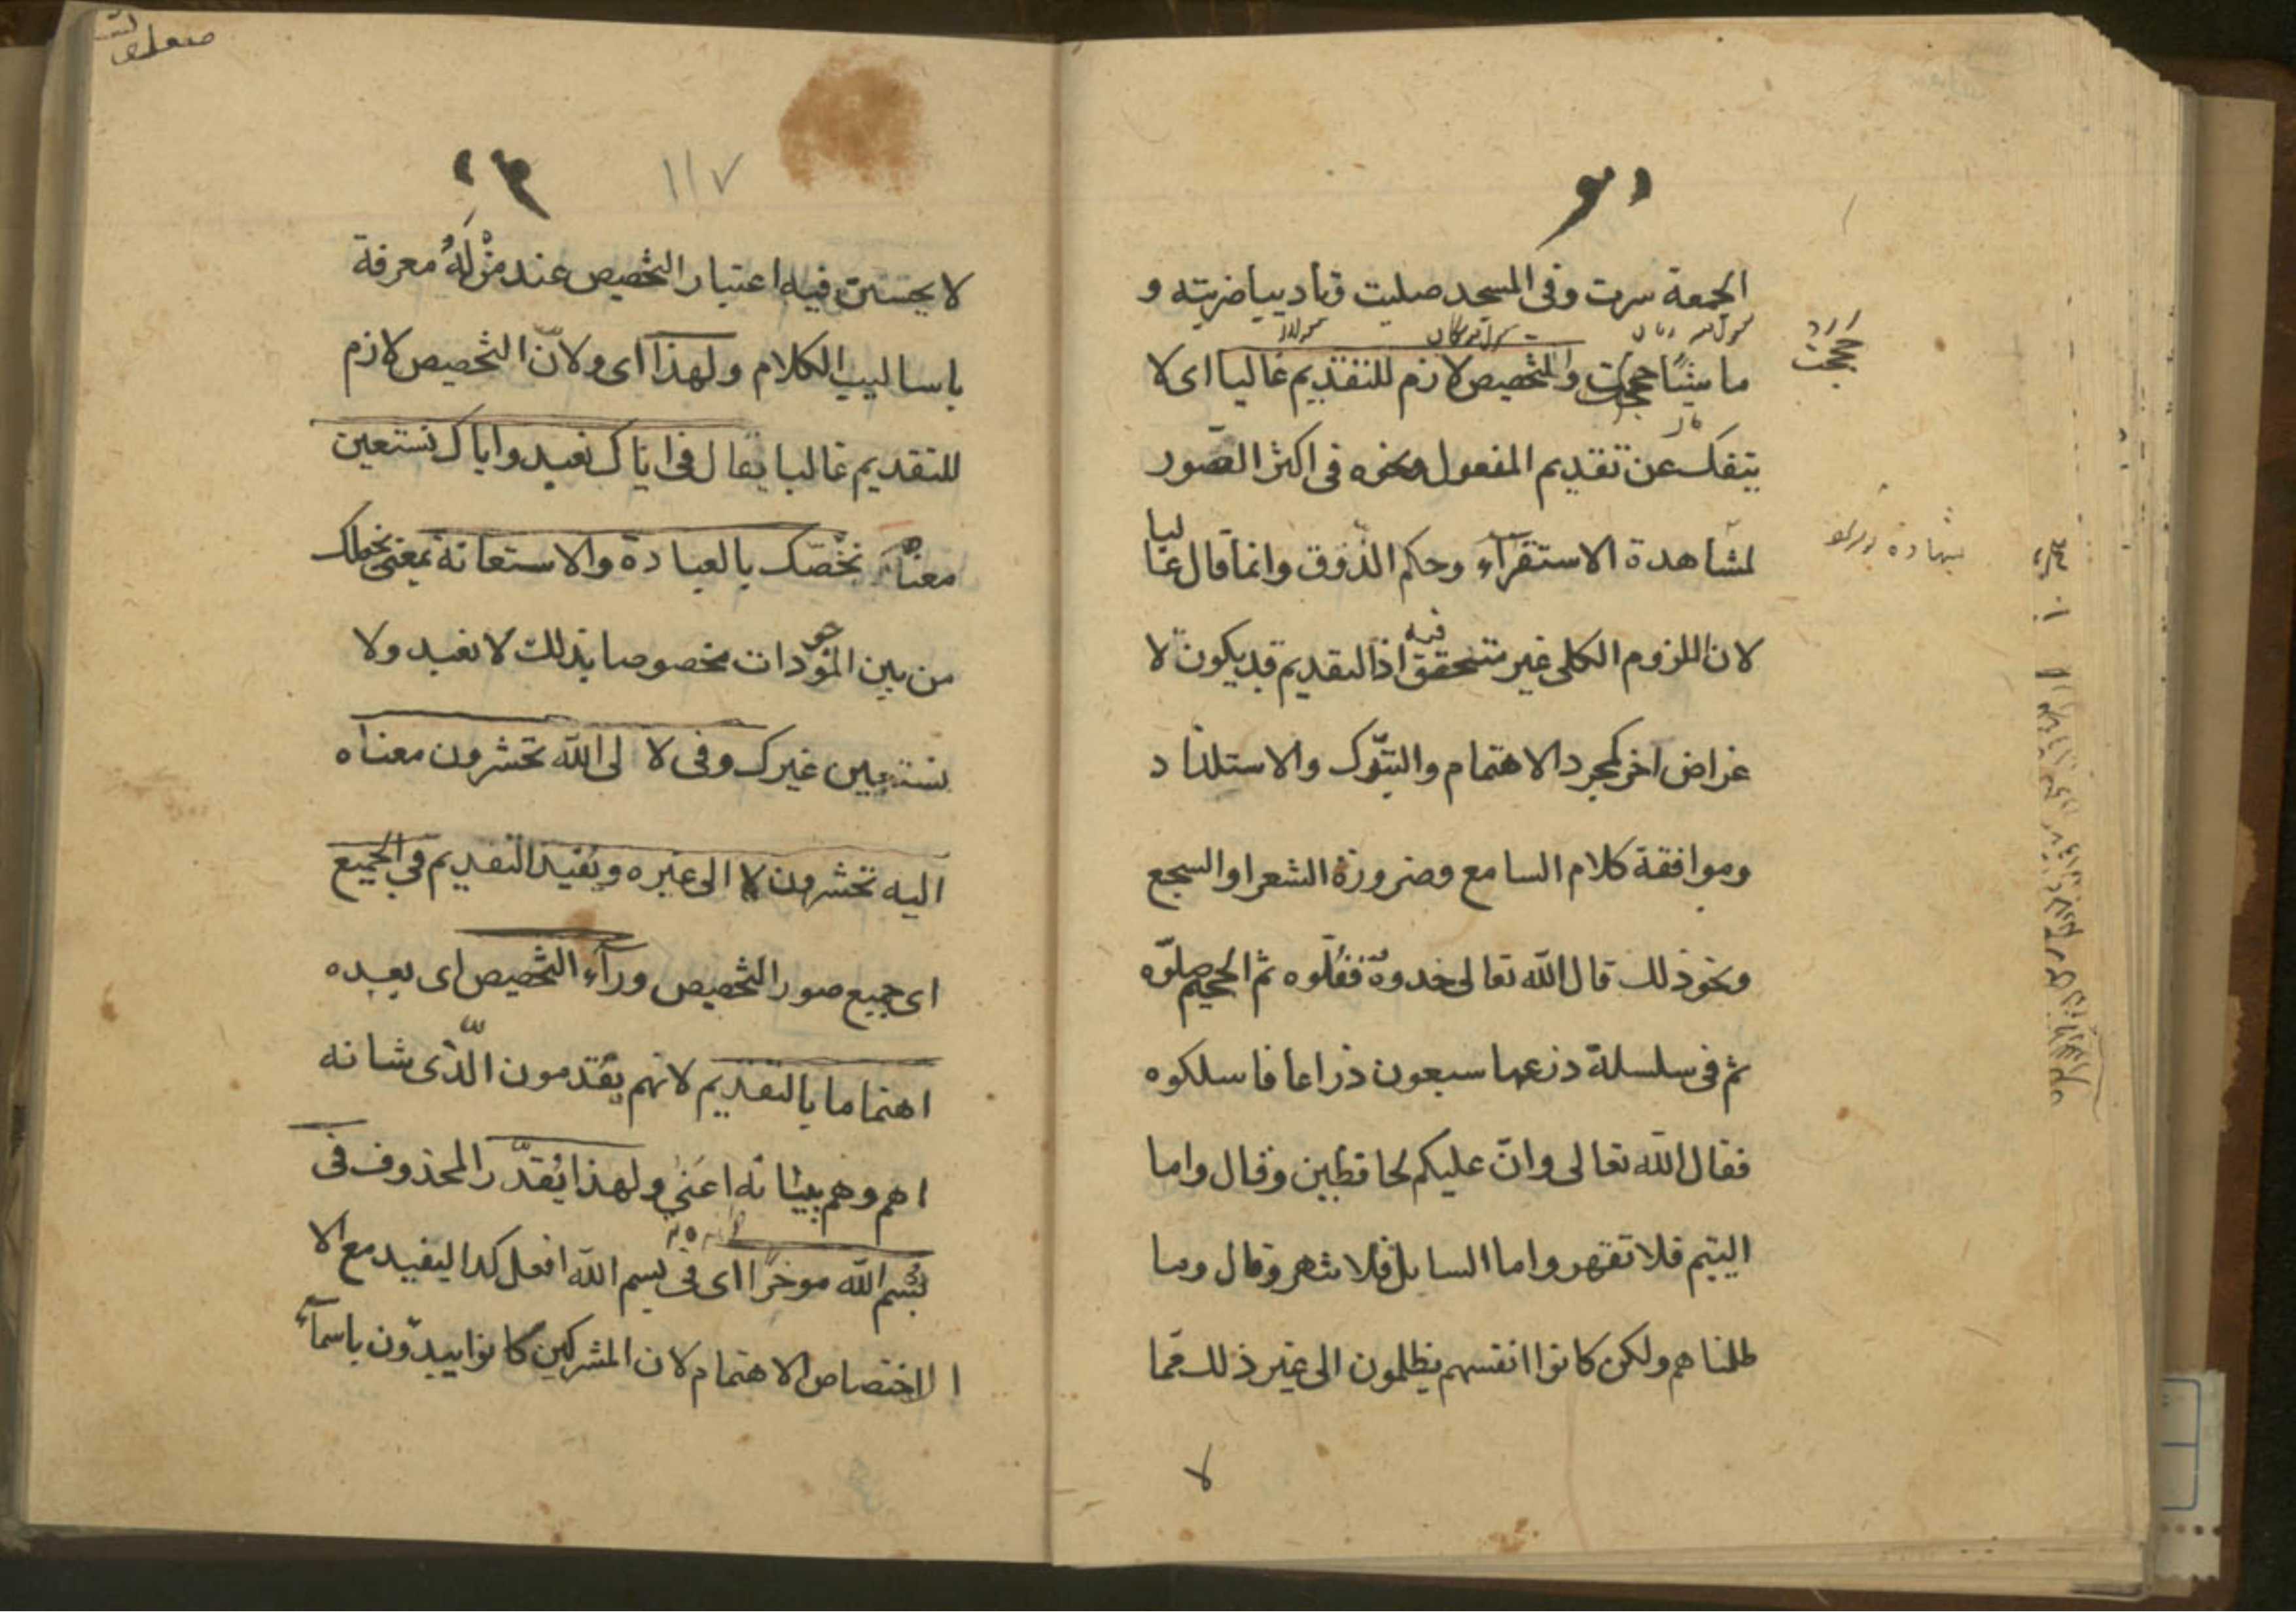 الجمعة سرت وفى المسجد صليت وتاديبا ضربته و
ماشيًا حججت والتخصيص لازم للتقديم غالبا اى لا
حججت
ينفك عن تقديم المفعول ونحوه فى اكثر الصور
لشاهدة الاستقرآء وحكم الذوق وانما قال غالبا
لان اللزوم الكلى غير متحقق فيه اذ التقديم قد يكون لا
غراض آخر كمجرد الاهتمام والتبرك والاستلذاد
وموافقة كلام السامع وضرورة الشعر او السجع
ونحو ذلك قال الله تعالى خدوه فغلّوه ثم الجحيم صلّوه
ثم فى سلسلة ذرعها سبعون ذراعا فاسلكوه
فقال الله تعالى وانّ عليكم لحافظين وقال واما
اليتيم فلا تقهر واما السايل فلا تنهر وقال وما
ظلمناهم ولكن كانوا انفسهم يظلمون الى غير ذلك مما
لا
١١٧
لا يحسن فيه اعتبار التخصيص عند من لَهُ معرفة
باساليب الكلام ولهذا اى ولانّ التخصيص لازم
للتقديم غالبا يقال فى اياك نعبد واياك نستعين
معناه نخصّك بالعبادة والاستعانة بمعنى نجعلك
من بين الموجودات مخصوصا بذلك لا نعبد ولا
نستعين غيرك وفى لا لى الله تحشرون معناه
اليه تحشرون لا الى غيره ويفيد التقديم فى الجميع
اى جميع صور التخصيص ورآء التخصيص اى بعده
اهتماما بالتقديم لانهم يقدمون الّذى شانه
اهم وهم ببيانه اعنى ولهذا يُقدّر المحذوف فى
بسم الله موخرًا اى فى بسم الله افعل كدا ليفيد مع الا
الاختصاص الاهتمام لان المشركين كانوا يبدّون باسمآء